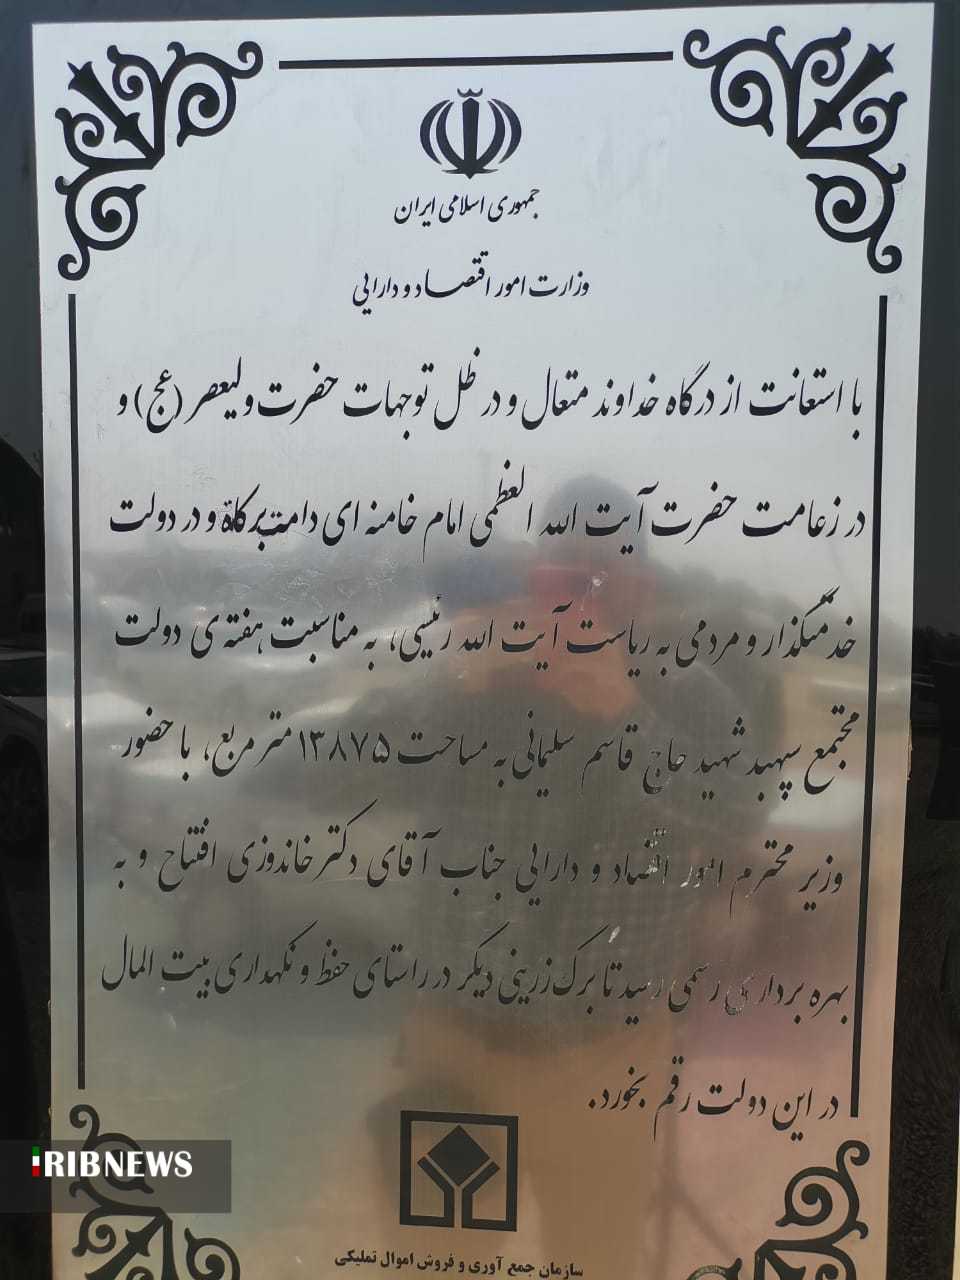 جمهوری اسلامی ایران
وزارت امور اقتصاد و دارایی
با استعانت از درگاه خداوند متعال و در ظل توجهات حضرت ولیعصر (عج) و
در زعامت حضرت آیت الله العظمی امام خامنه ای دامت برکاة و در دولت
خدمتگذار و مردمی به ریاست آیت الله رئیسی، به مناسبت هفته ی دولت
مجتمع سپهبد شهید حاج قاسم سلیمانی به مساحت ۱۳۸۷۵ متر مربع، با حضور
وزیر محترم امور اقتصاد و دارایی جناب آقای دکتر خاندوزی افتتاح و به
بهره برداری رسمی رسید تا برگ زرینی دیگر در راستای حفظ و نگهداری بیت المال
در این دولت رقم بخورد.
IRIBNEWS
سازمان جمع آوری و فروش اموال تملیکی